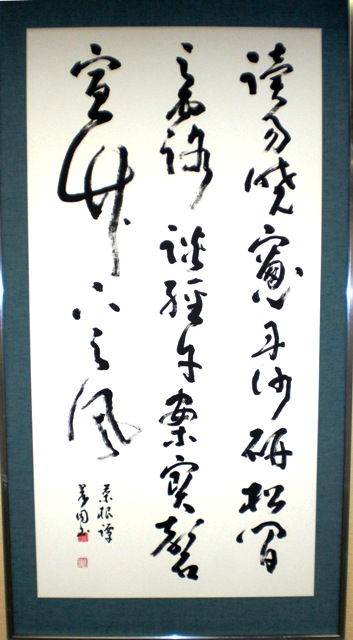 讀易曉窻丹沙研松間
之露談經午案寶磬
宣竹下之風
菜根譚